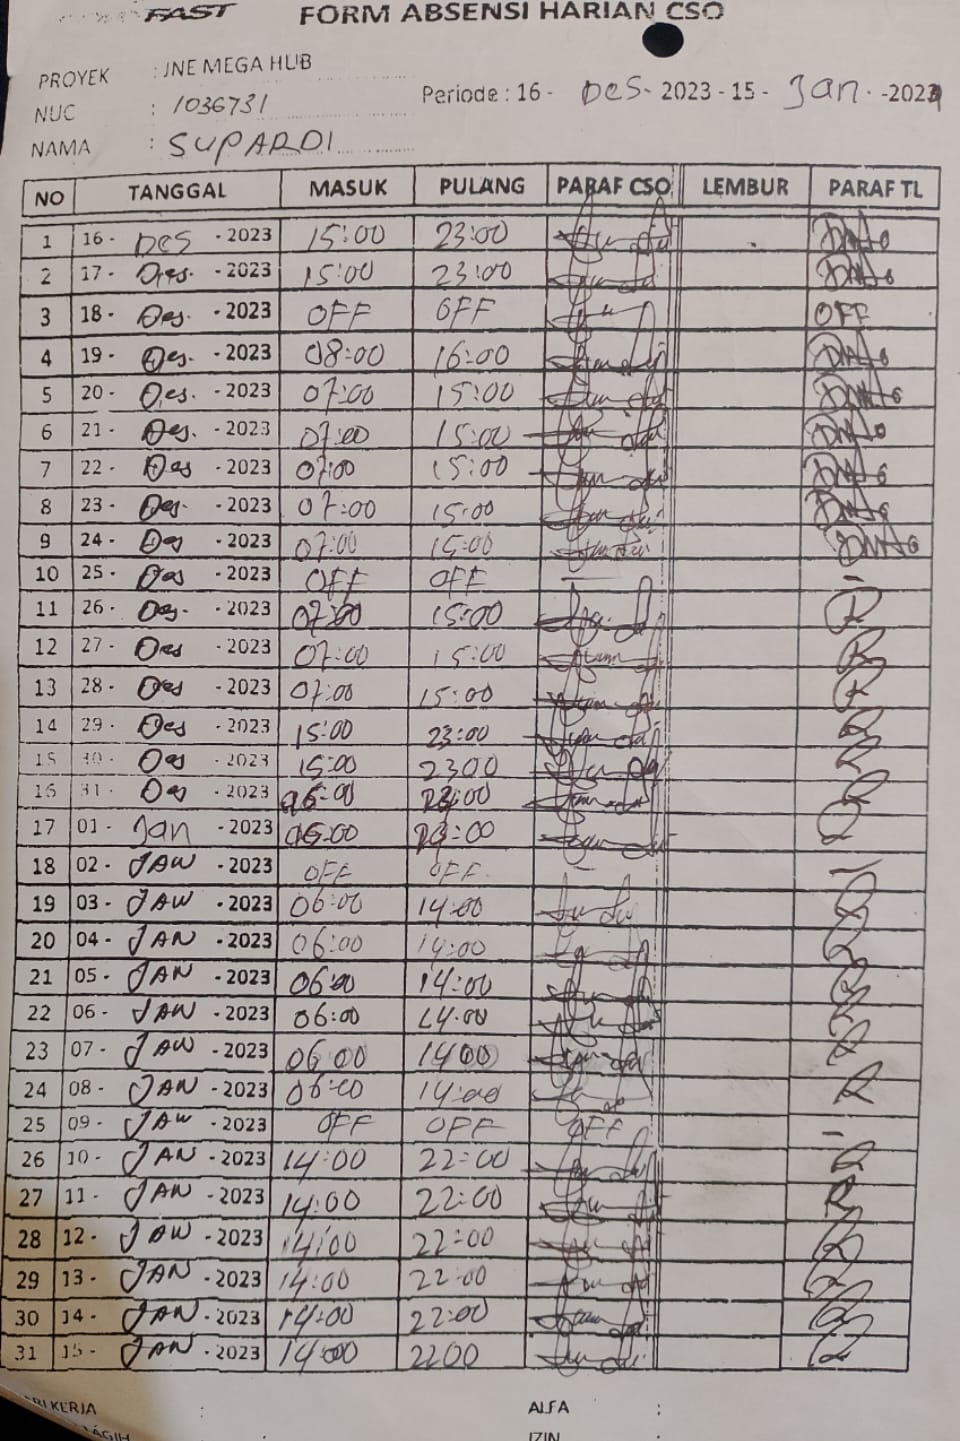 FAST FORM ABSENSI HARIAN CSO
PROYEK : JNE MEGA HUB
NUC : 1036731 Periode : 16 - Des - 2023 - 15 - Jan - 2024
NAMA : SUPARDI
NO TANGGAL MASUK PULANG PARAF CSO LEMBUR PARAF TL
1 16 - DES - 2023 15:00 23:00
2 17 - Des. - 2023 15:00 23:00
3 18 - Des. - 2023 OFF OFF OFF
4 19 - Des. - 2023 08:00 16:00
5 20 - Des. - 2023 07:00 15:00
6 21 - Des. - 2023 07:00 15:00
7 22 - Des - 2023 07:00 15:00
8 23 - Des. - 2023 07:00 15:00
9 24 - Des - 2023 07:00 15:00
10 25 - Des - 2023 OFF OFF -
11 26 - Des. - 2023 07:00 15:00
12 27 - Des - 2023 07:00 15:00
13 28 - Des - 2023 07:00 15:00
14 29 - Des - 2023 15:00 23:00
15 30 - Des - 2023 15:00 2300
16 31 - Des - 2023
17 01 - Jan - 2023
18 02 - JAN - 2023 OFF OFF -
19 03 - JAN - 2023 06:00 14:00
20 04 - JAN - 2023 06:00 14:00
21 05 - JAN - 2023 06:00 14:00
22 06 - JAN - 2023 06:00 14:00
23 07 - JAN - 2023 06 00 1400
24 08 - JAN - 2023 06:00 14:00
25 09 - JAN - 2023 OFF OFF OFF -
26 10 - JAN - 2023 14:00 22:00
27 11 - JAN - 2023 14:00 22:00
28 12 - JAN - 2023 14:00 22:00
29 13 - JAN - 2023 14:00 22:00
30 14 - JAN - 2023 14:00 22:00
31 15 - JAN - 2023 14:00 2200
KERJA : ALFA :
IZIN